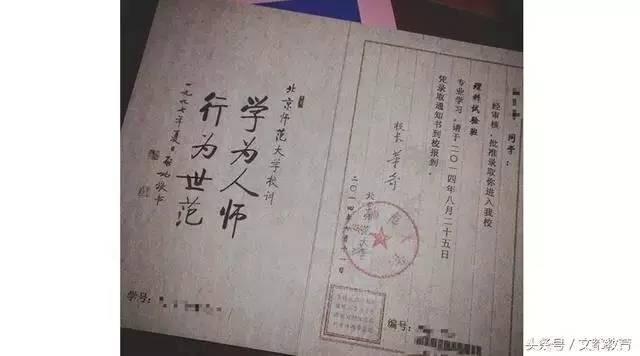 北京师范大学校训
学为人师
行为世范
一九九七年夏日启功敬书
学号:
同学:
经审核,批准录取你进入我校
理科试验班
专业学习。请于二〇一四年八月二十五日
凭录取通知书到校报到。
校长 董奇
北京师范大学
二〇一四年
编号:
头条号/文都教育